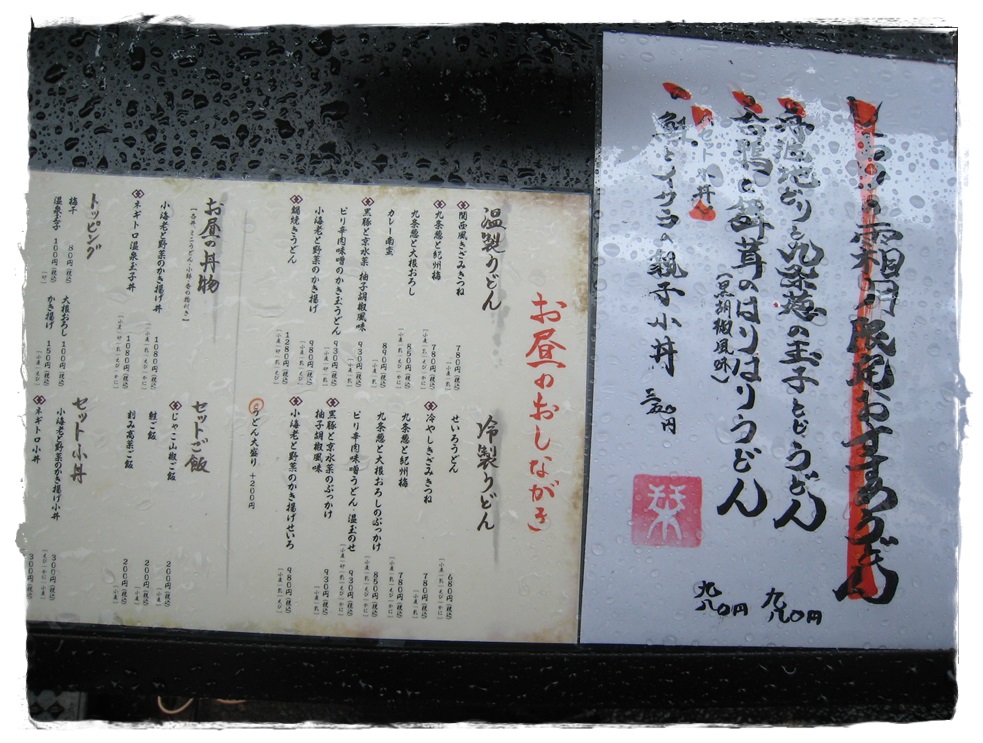 霜月限定おすすめうどん
丹波地どりと九条葱の玉子とじうどん
九八〇円
合鴨と舞茸のはりはりうどん
(黒胡椒風味)
九八〇円
セット小丼
鮭とイクラの親子小丼
三五〇円
お昼のおしながき
温製うどん
関西風きざみきつね
780円(税込)
九条葱と紀州梅
780円(税込)
九条葱と大根おろし
850円(税込)
カレー南蛮
890円(税込)
黒豚と京水菜 柚子胡椒風味
930円(税込)
ピリ辛肉味噌のかき玉うどん
930円(税込)
小海老と野菜のかき揚げ
980円(税込)
鍋焼きうどん
1280円(税込)
冷製うどん
せいろうどん
680円(税込)
冷やしきざみきつね
780円(税込)
九条葱と紀州梅
780円(税込)
九条葱と大根おろしのぶっかけ
850円(税込)
ピリ辛肉味噌うどん・温玉のせ
930円(税込)
黒豚と京水菜のぶっかけ
柚子胡椒風味
930円(税込)
小海老と野菜のかき揚げせいろ
980円(税込)
うどん大盛り +200円
お昼の丼物
小海老と野菜のかき揚げ丼
1080円(税込)
ネギトロ温泉玉子丼
1080円(税込)
トッピング
梅干 80円(税込)
温泉玉子 100円(税込)
大根おろし 100円(税込)
かき揚げ 150円(税込)
セットご飯
じゃこ山椒ご飯
200円(税込)
鮭ご飯
200円(税込)
刻み高菜ご飯
200円(税込)
セット小丼
小海老と野菜のかき揚げ小丼
300円(税込)
ネギトロ小丼
300円(税込)